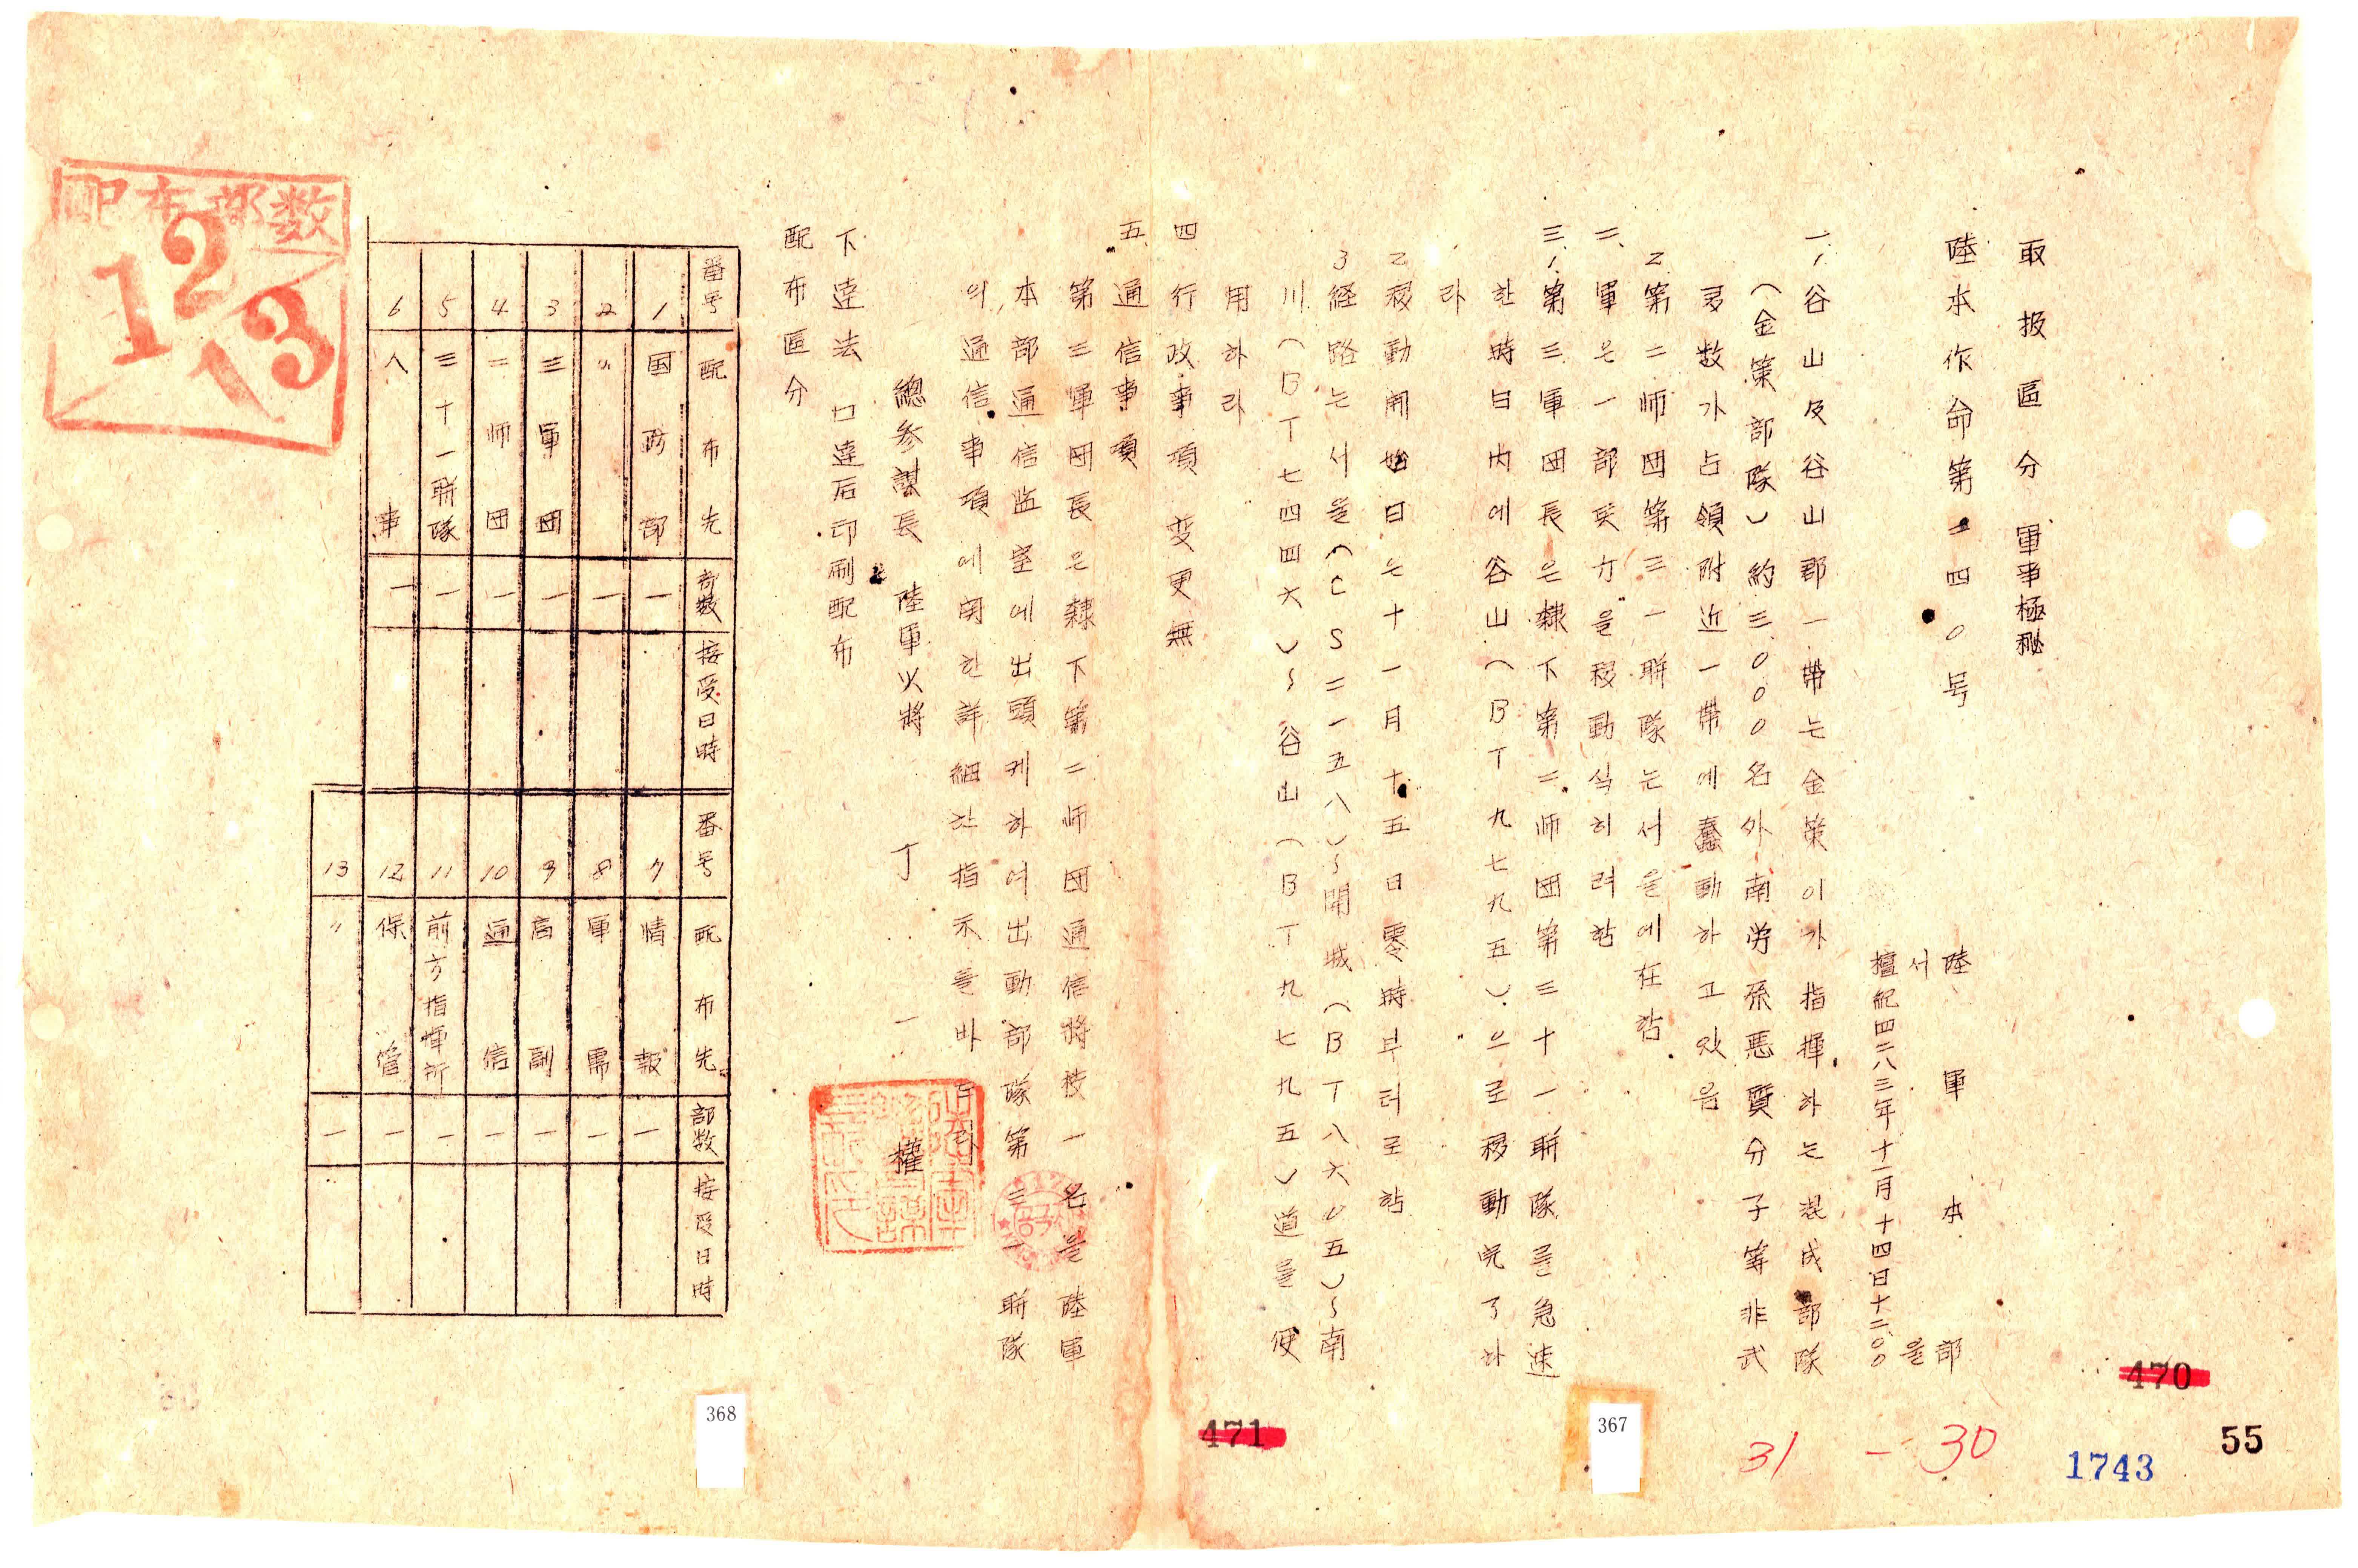 取扱區分 軍事極秘
陸本作命第二四0号
陸軍本部
서을
檀紀四二八三年十一月十四日十二、00
一、1 谷山及谷山郡一帶는金策이가指揮하는混成部隊
(金策部隊)約三、000名外南労系悪質分子等非武
多数가占領附近一帶에蠢動하고있음
2 第二师団第三一聯隊는서을에在함
二、軍은一部兵力을移動식히려함
三、1 第三軍団長은隷下第二师団第三十一聯隊를急速
한時日内에谷山(BT九七九五)으로移動完了하
라
2 移動開始日은十一月十五日零時부터로함
3 経路는서을(CS二一五八)~開城(BT八六0五)~南
川(BT七四四六)~谷山(BT九七九五)道를使
用하라
四 行政事項 变更無
五、通信事項
第三軍団長은隷下第二师団通信將校一名을陸軍
本部通信监室에出頭케하여出動部隊第三一聯隊
의通信事項에関한詳細한指示를바드라
總参謀長 陸軍少將 丁 一 權
下達法 口達后印刷配布
配布區分
番号 配布先 部数 接受日時
1 国防部 一
2 〃 一
3 三軍団 一
4 二师団 一
5 三十一聯隊 一
6 人事 一
番号 配布先 部数 接受日時
7 情報 一
8 軍需 一
9 高副 一
10 通信 一
11 前方指揮所 一
12 保管 一
13 〃 一
配布部数
12
13
368
471
367
470
31 - 30
1743
55